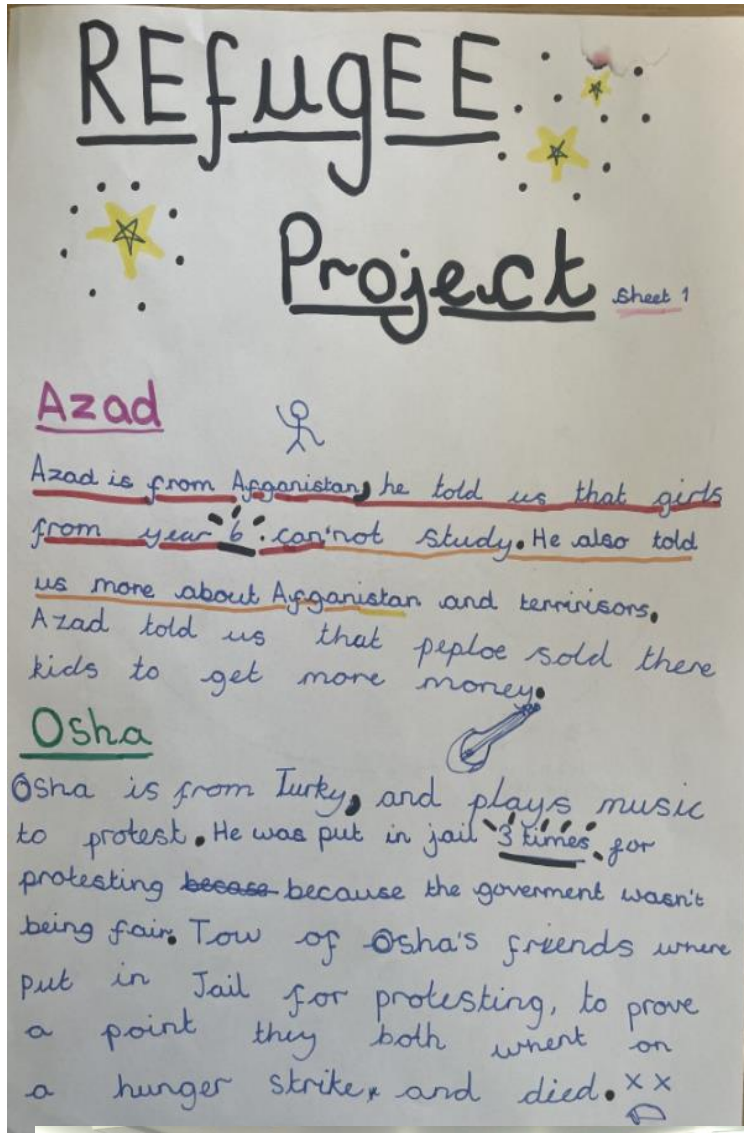 REfugEE
Project sheet 1
Azad
Azad is from Afganistan, he told us that girls
from year 6 can'not study. He also told
us more about Afganistan and terririsors.
Azad told us that peploe sold there
kids to get more money.
Osha
Osha is from Turky, and plays music
to protest. He was put in jail 3 times for
protesting becase because the goverment wasn't
being fair. Tow of Osha's friends where
put in Jail for protesting, to prove
a point they both whent on
a hunger strike, and died.